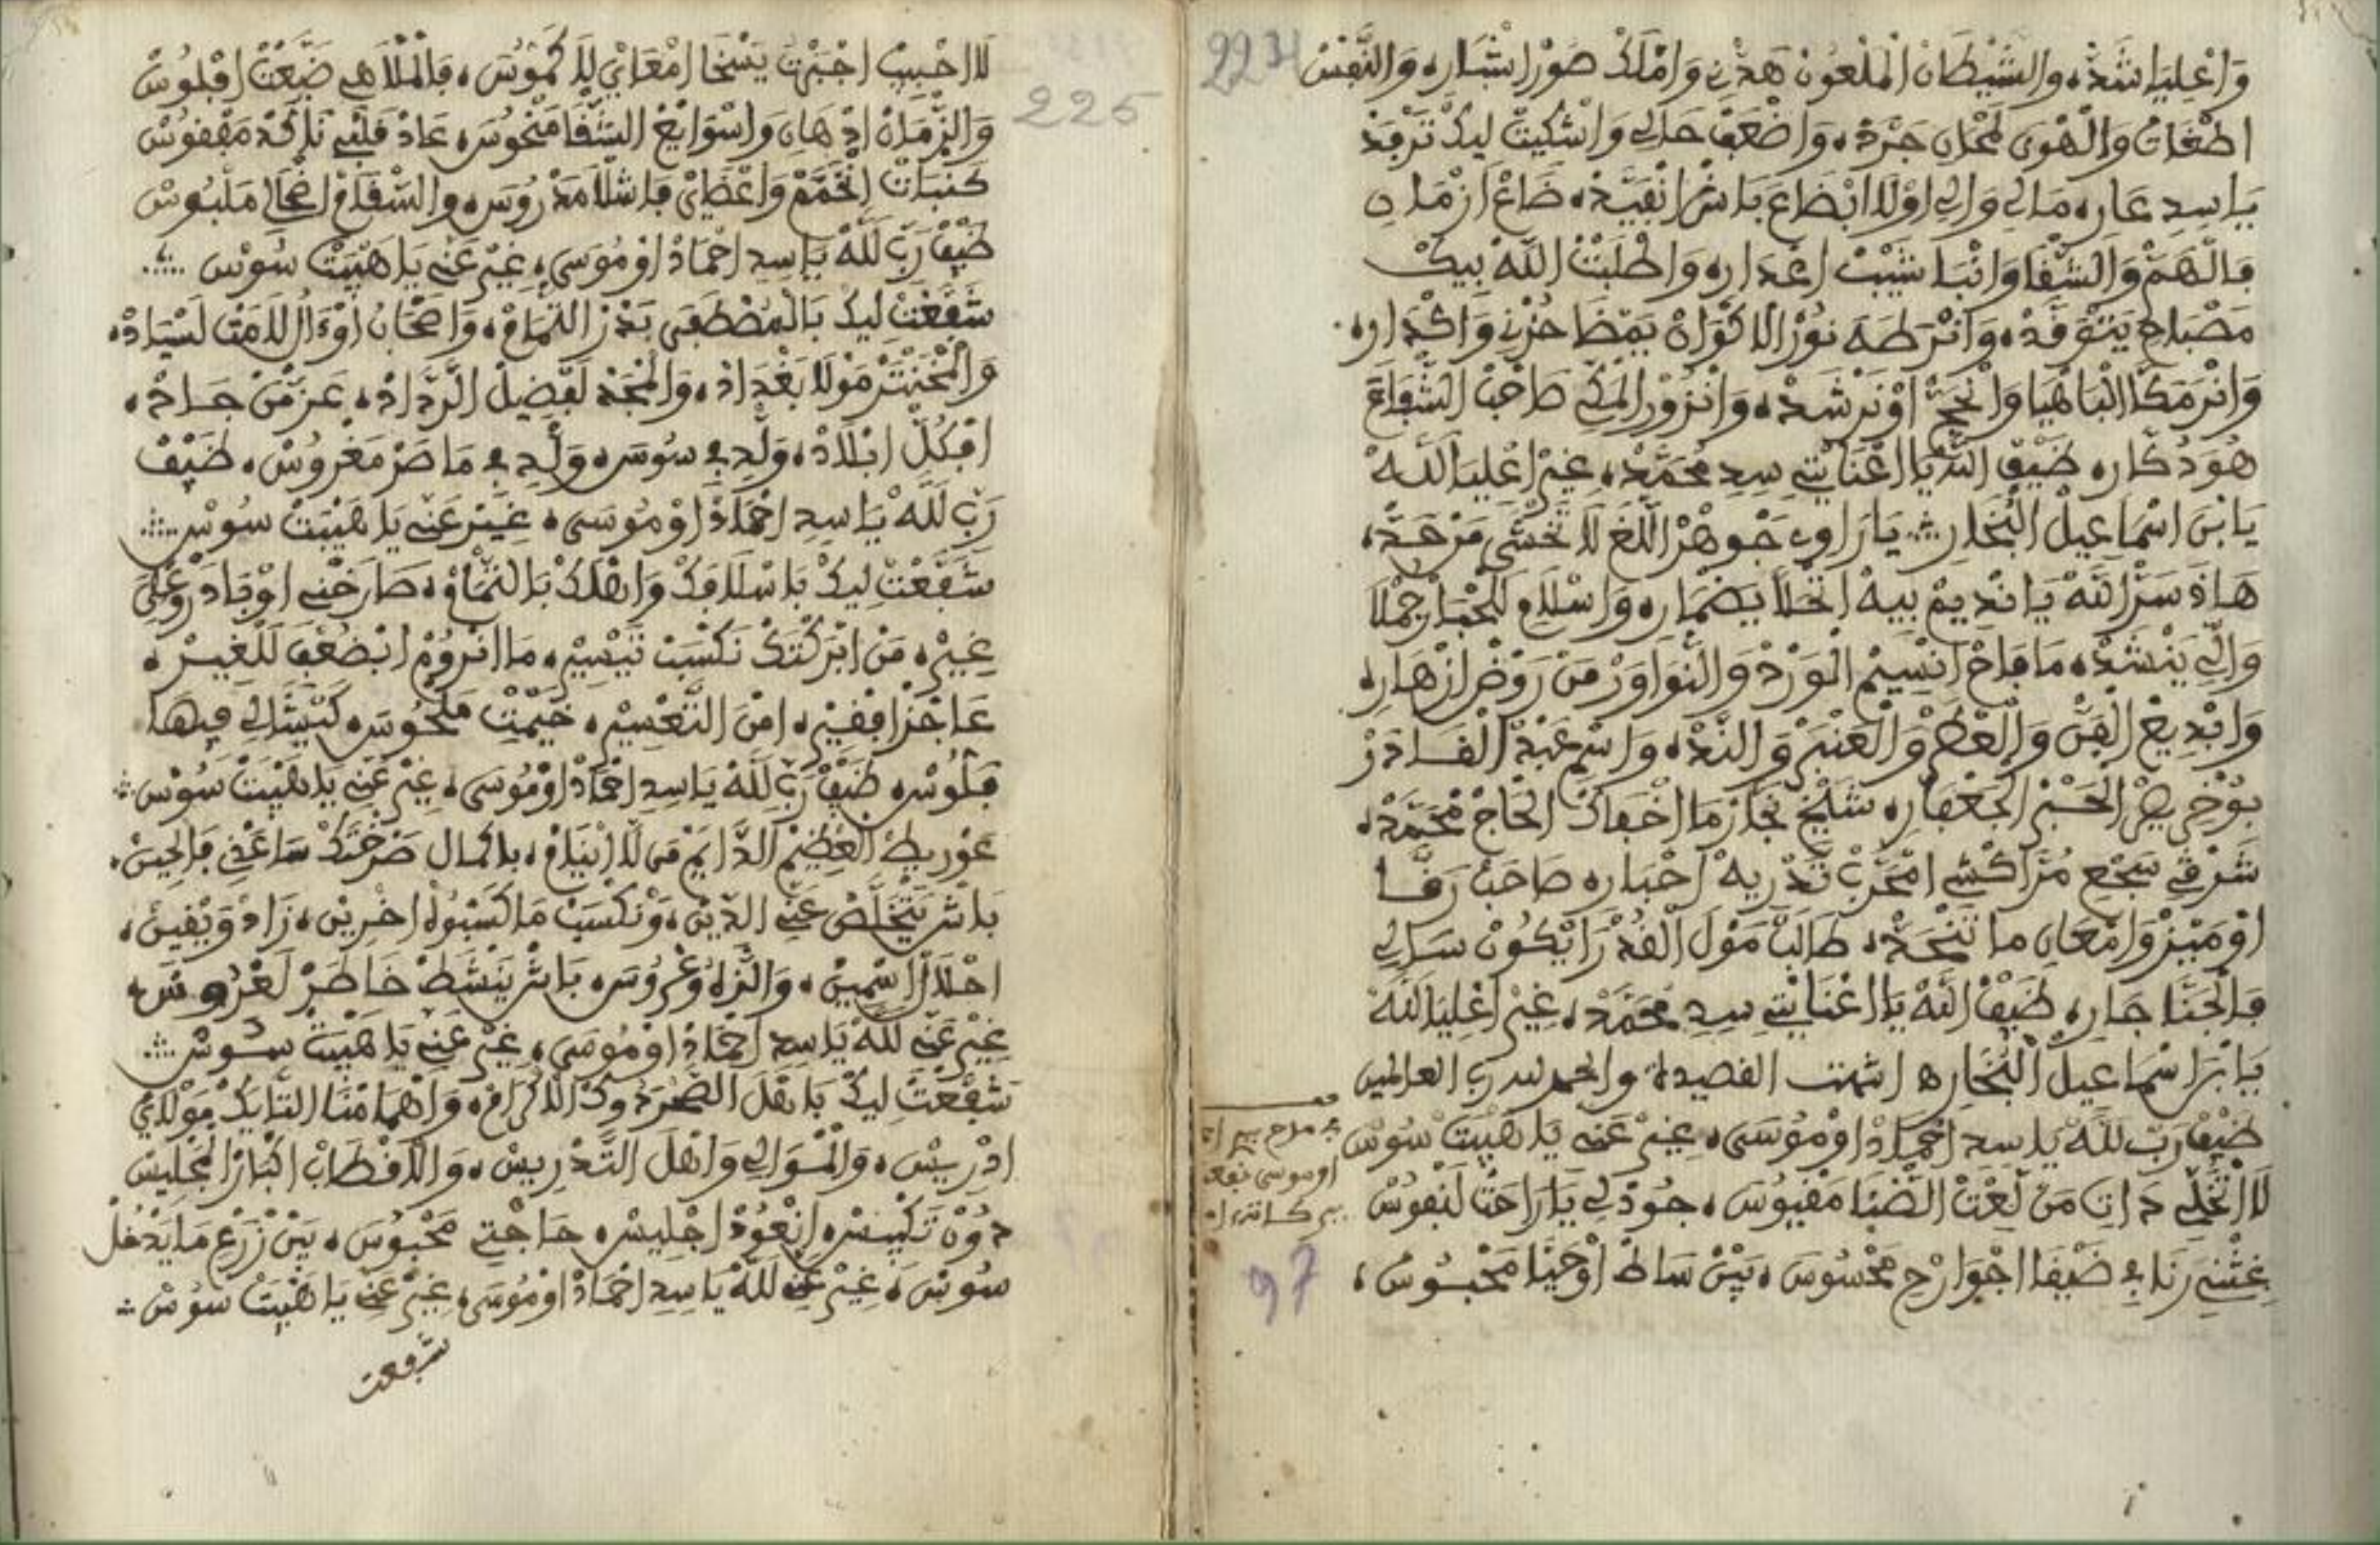 224
وَاعْلِيَا شَدّْ، والشَّيْطَانْ الْمَلْعُونْ هَدْنِ وَامْلَكْ صُورْ اشْبَارِ، وَالنَّفْسْ
اطْغَاتْ وَالْهْوَى لَمْحَانِ جَرَّدْ، وَاضْعَفْ حَالِي وَاشْكِيتْ لِيكْ تَرْفَدْ
يَا سِيدِ عَارِ، مَالِي وَالِي اوْلَا ابْضَاعَ بَاشْ انْفَيَّدْ، ضَاعْ ازْمَانِ
فَالْهَمّْ وَالشّْفَا وَانْبَا شَيْبْ اعْدَارِ، وَاطْلَبْتْ اللَّهْ بِيكْ
مَصْبَاحِ يَتْوَقَّدْ، وَانْرَ طَهَ نُورْ الَاكْوَانْ يَمْضَا حُزْنِ وَاكْدَارِ،
وَانْرَ مَكَّا الْبَاهْيَا وَانْحَجّْ اوْ نَرْشَدْ، وَانْزُورْ الْمَكِّي صَاحَبْ الشّْفَاعَ
هُوَ دُكَّارِ، ضَيْفْ اللَّهْ يَا اعْنَايْتِي سِيدِ مُحَمَّدْ، غِيرْ اعْلِيَا اللَّهْ
يَا بْنَ اسْمَاعِيلْ الْبُخَارِ ∴ يَا رَاوِي جَوْهَرْ اللّْغَ لَا تَخْشَى مَنْ حَدّْ،
هَاذَ سَرّْ اللَّهْ يَا نْدِيمْ بِيهْ اتْحَلَّا يَضْمَارِ، وَاسْلَامِ لَلْحْبَارْ جَمْلَا
وَالِّي يَنْشَدْ، مَا فَاحْ انْسِيمْ الْوَرْدْ وَالنّْوَاوَرْ مَنْ رَوْضْ ازْهَارِ،
وَابْدِيعْ الْفَنّْ وَالْعْطَرْ وَالْعَنْبَرْ وَالنَّدّْ، وَاسْمِ عَبْدْ الْقَادَرْ
بُوخْرِيصْ الْحَسْبْ الْجَعْفَارِ، شَيْخِ نَجَّارْ مَا اخْفَاكْ الْحَاجْ مْحَمَّدْ،
شَرْقِي سَجْعِ مُرَّاكْشِي امْجَرَّبْ تَدْرِيهْ احْبَارِ، صَاحَبْ رَقَّا
اوْ مَيْزْ وَامْعَانِ مَا تَنْجْحَدْ، طَالَبْ مَوْلَ الْقُدْرَا يْكُونْ سَالِي
فَالْجَنَّا جَارِ، ضَيْفْ اللَّهْ يَا اعْنَايْتِي سِيدِ مُحَمَّدْ، غِيرْ اعْلِيَا اللَّهْ
يَا بْنَ اسْمَاعِيلْ الْبُخَارِ ه انتهت القصيدة والحمد لله رب العالمين
ضَيْفْ رَبّْ للَّهْ يَا سِيدِ احْمَادْ اوْ مُوسَى، غِيرْ عَنِّي يَا هَيْبَتْ سُوسْ
لَا اتْخَلِّي دَاتِي مَنْ لَعْتْ الضّْنَا مَفْيُوسَ، جُودْ لِي يَا رَاحَتْ لَنْفُوسْ
غِشْنِي رَنَا فِي ضَيْقَا اجْوَارْحِ مَحْسُوسَ، بَيْنْ سَاطْ اوْحَيْنَا مَحْبُوسْ،
اوموسى نفعنا
97
225
لَا احْبِيبْ اجْبَرْتْ يَسْخَا امْعَايْ لَا كَمُّوسَ، فَالْمْلَاهِي ضَيَّعْتْ افْلُوسْ
وَالزّْمَانْ ادْهَانِ وَاسْوَايَعْ الشّْفَا مَنْحُوسَ، عَادْ قَلْبِي نَاكَدْ مَقْفُوسْ
كَنْبَاتْ انْخَمَّمْ وَاعْضَايْ فَاشْلَا مَدْرُوسَ، والشّْقَامْ لمْحَالِي مَلْبُوسْ
ضَيْفْ رَبّْ للَّهْ يَا سِيدِ احْمَادْ اوْ مُوسَى، غِيرْ عَنِّي يَا هَيْبَتْ سُوسْ ∴
شَفَّعْتْ لِيكْ بَالْمُصْطَفَى بَدْرْ التّْمَامْ، وَاصْحَابُ اوْءَالْ لَامَتْ لَسْيَادْ،
وَالْمْحَنْتَرْ مَوْلَا بَغْدَادْ، وَالْمْجَدْ لَفْضِيلْ الرَّدَّادْ، عَزّْ مَنْ جَادْ،
افْكُلّْ ابْلَادْ، وَلِّدِ فِي سُوسَ، وَلِّدِ فِي مَاصَرْ مَغْرُوسْ، ضَيْفْ
رَبّْ للَّهْ يَا سِيدِ احْمَادْ اوْ مُوسَى، غِيرْ عَنِّي يَا هَيْبَتْ سُوسْ ∴
شَفَّعْتْ لِيكْ بَاسْلَافَكْ وَاهْلَكْ بَالتّْمَامْ، صَارَخْنِي اوْفَادَرْ وَعْلَى
غِيرْ، مَنْ ابْرَكْتَكْ نَكْسَبْ تَيْسِيرْ، مَا انْرُومْ ابْضُعْفِ لَلْغِيرْ،
عَاجْزْ افْقِيرْ، امْنَ التَّعْسِيرْ، خَيْمْتِ مَنْحُوسَ، كَتَّيْشَالِي فِيهَا
فَلُوسْ، ضَيْفْ رَبّْ للَّهْ يَا سِيدِ احْمَادْ اوْ مُوسَى، غِيرْ عَنِّي يَا هَيْبَتْ سُوسْ ∴
غَوْرِيطْ الْعْظِيمْ الدَّايَمْ مَنْ لَا ايْنَامْ، بَاكْمَالْ صَرْخْتَكْ سَاعَدْنِي فَالْحِينْ،
بَاشْ يَتْخَلَّصْ عَنِّي الدِّينْ، وَنْكْسَبْ مَا كَسْبُوا اخْرِينْ، زَادْ وَيْقِينْ،
احْلَالْ اسْمِينْ، وَالنّْزَهْ وَعْرُوسَ، بَاشْ يَنْشَطْ خَاطَرْ لَعْرُوسْ،
غِيرْ عَنِّي للَّهْ يَا سِيدِ احْمَادْ اوْ مُوسَى، غِيرْ عَنِّي يَا هَيْبَتْ سُوسْ ∴
شَفَّعْتْ لِيكْ بَاهْلَ الصُّرَّة وكْذَا الَاكْرَامْ، وَاهْمَامْنَا التَّايَكْ مَوْلَايْ
ادْرِيسْ، وَالْمْوَالِي وَاهْلَ التَّدْرِيسْ، وَالَاقْطَابْ اكْبَارْ الْمَجْلِيسْ
دُونْ تَكْيِيسْ، انْعُودْ اجْلِيسْ، حَاجْتِي مَحْبُوسَ، بَيْنْ زَرْعِ مَا يَدْخُلْ
سُوسْ، غِيرْ عَنِّي للَّهْ يَا سِيدِ احْمَادْ اوْ مُوسَى، غِيرْ عَنِّي يَا هَيْبَتْ سُوسْ ∴
شفعت